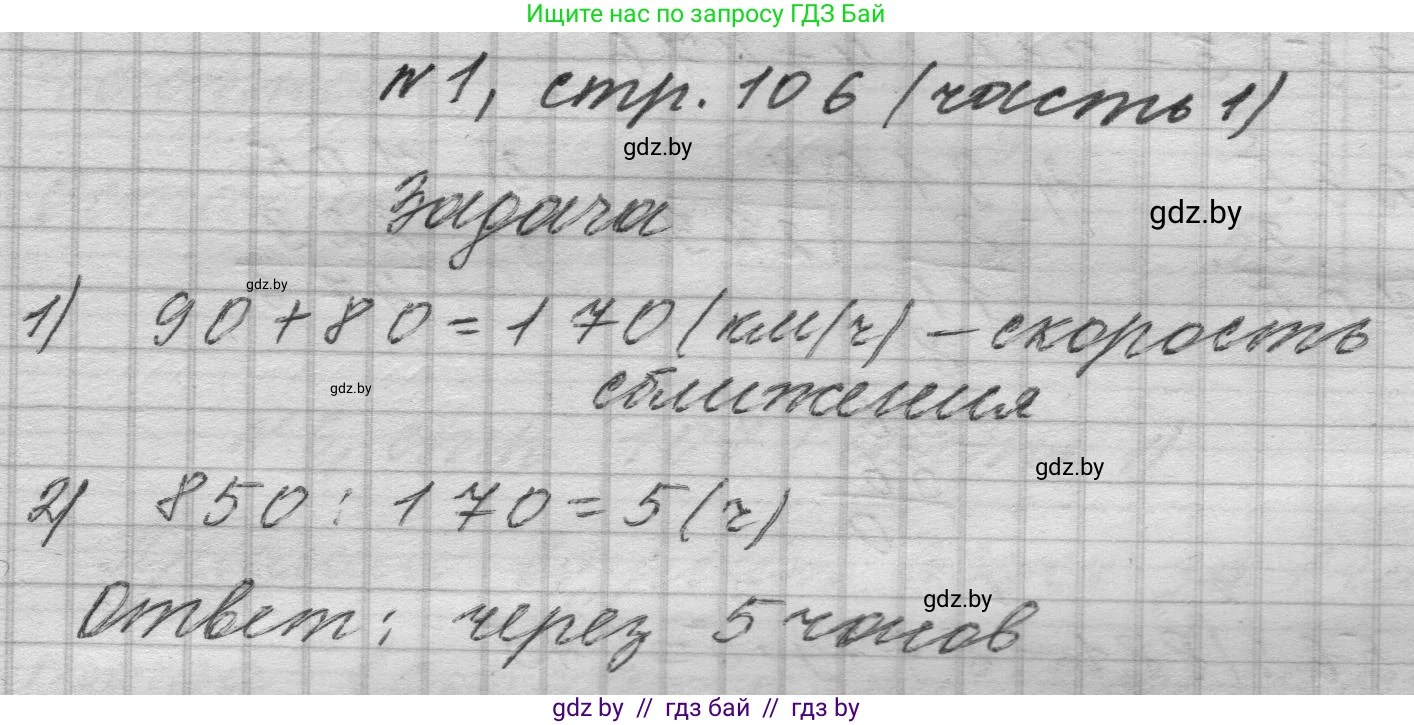 Ищите нас по запросу ГДЗ Бай
№1, стр. 106 (часть 1)
gdz.by
Задача
gdz.by
gdz.by
1) 90+80=170(км/ч) – скорость
gdz.by
сближения
gdz.by
2) 850:170=5(ч)
gdz.by
Ответ: через 5 часов
gdz by // гдз бай // гдз by